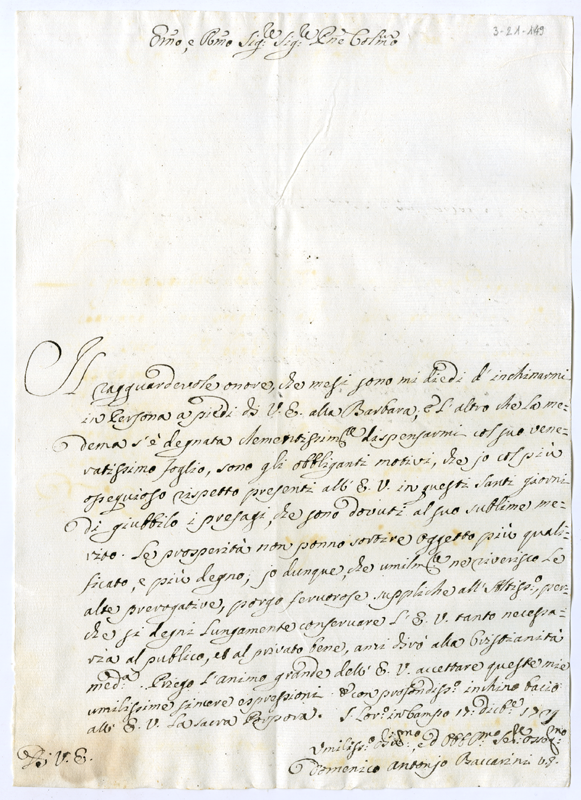 3-21-149
Em̃o, e Rm̃o Sig.re Sig.re Pñe Colm̃o
Il ragguardevole onore, che mesi sono mi diedi d'inchinarmi
in Persona a piedi di V. E. alla Barbara, e l'altro che la me-
dema s'è degnata clementissim.te dispensarmi col suo vene-
ratissimo foglio, sono gli obbliganti motivi, che io col più
ossequioso rispetto presenti all' E. V. in questi santi giorni
di giubbilo i presagi, che sono dovuti al suo sublime me-
rito. Le prosperità non ponno sortire oggetto più quali-
ficato, e più degno, io dunque, che umilm.te ne riverisco le
alte prerogative, porgo fervorose suppliche all' Altiss.o, per-
che si degni lungamente conservare l' E. V. tanto necessa-
ria al publico, et al privato bene, anzi dirò alla Cristianità
med.a. Priego l'animo grande dell' E. V. accettare queste mie
umilissime sincere espressioni. E con profondiss.o inchino bacio
all' E. V. la sacra Porpora. S. Lor.o in Campo 17 Dicb.e
Di V. E.
Umiliss.o ed Obbl.mo
Domenico Antonio Baccarini